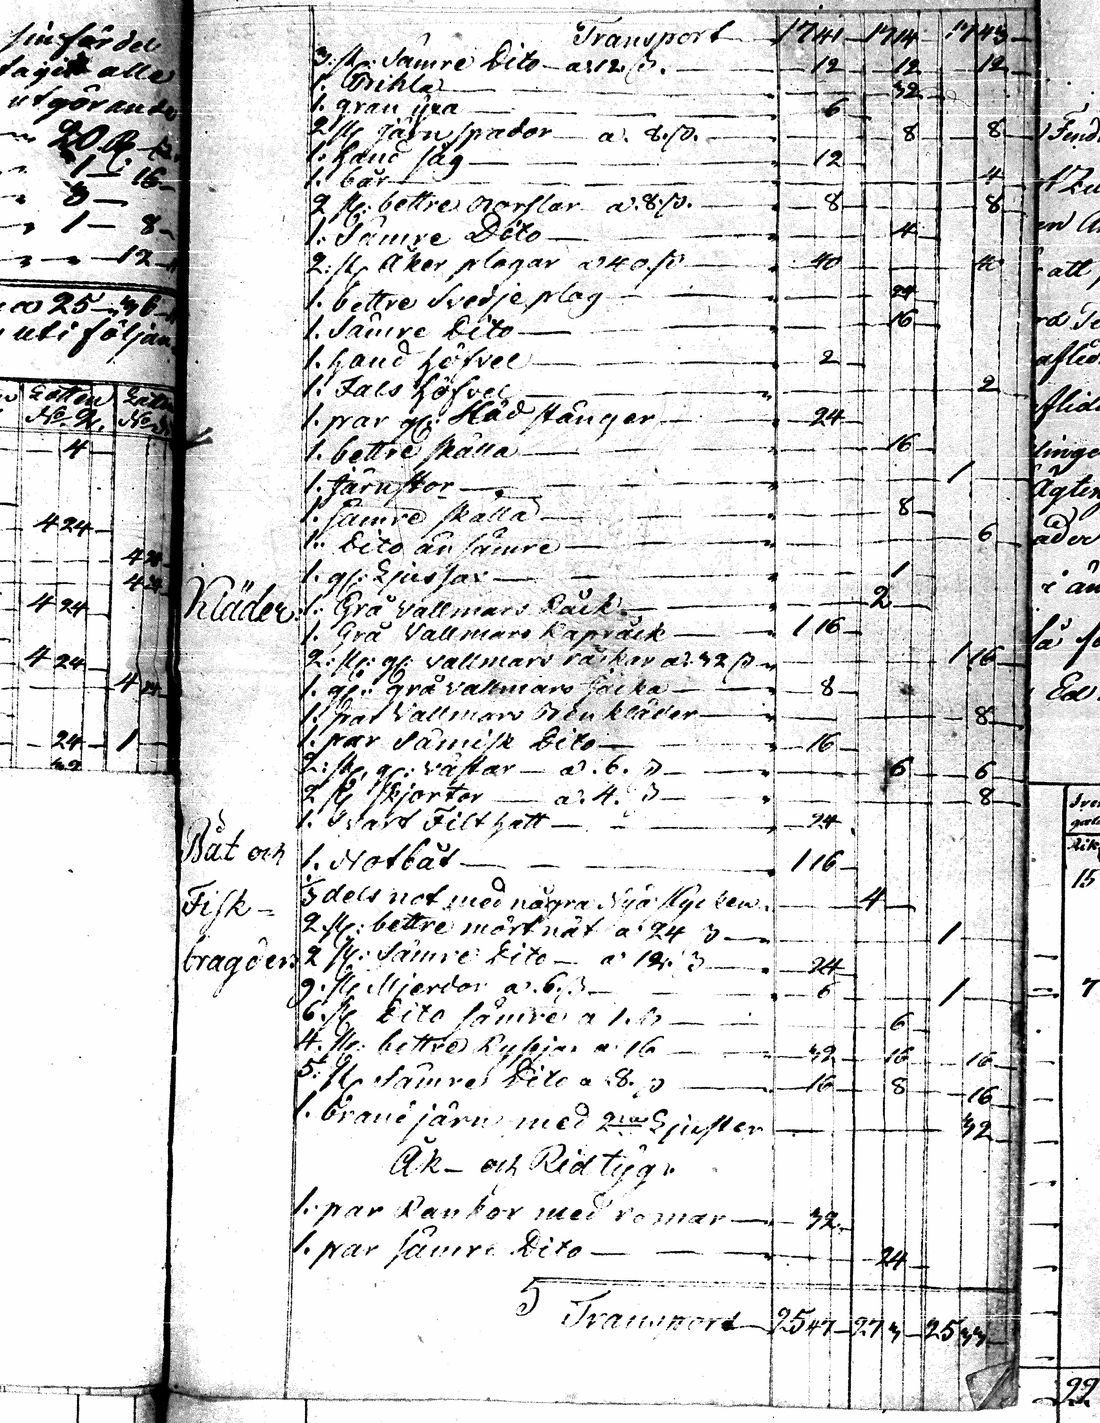 sin fördel
tagit alle
utgörande
20
1 — 16 —
3 —
1 — 8 —
12 —
25 — 36
uti följan
Lotten Lotten
No. 2. No. 3
4
4 24
4 24
4 24
4 24
24 1
32
Transport 1741 1714 1743
3: st. Sämre Dito — a 12 ß. 12 12 12
1. Bihla 32
1. gran yxa 6
2 st. järn spador — a. 8. ß. 8 8
1. hand såg 12
1. bår 4
2 st: bettre Norslar a. 8. ß. 8 8
1. Sämre Dito 4
2: st. Åker plogar a 40 ß 40 40
1. bettre Svedje plog 24
1. Sämre Dito 16
1. hand höfvel 2
1. Fals höfvel 2
1. par gl: stänger 24
1. bettre skälla 16
1. Järnstör 1
1. sämre skälla 8
1. Dito än sämre 6
1. gl: Ljussax 1
Kläder. 1. Grå Vallmars Råck 2
1. Grå Vallmars Kapråck 1 16
2: st: gl: vallmars råckar a. 32 ß 1 16
1. gl: grå vallmars Jacka 8
1. par Vallmars Benkläder 8
1. par Sämisk Dito 16
2: st. gl: Västar — a. 6. ß 6 6
2 st. Skjortor — a. 4. ß 8
1. Svart Filthatt 24
Båt och 1. Notbåt 1 16
Fisk- 1/3 dels not med några Nya stycken 4
2 st: bettre mörtnät a 24 ß 1
bragden 2 st: Sämre Dito — a 12. ß 24
9. st Mjerdor a. 6. ß 6 1
6. st Dito sämre a 1. ß 6
4. st: bettre Ryssjor a 16 32 16 16
5: st Sämre Dito a 8. ß 16 8 16
1. Brand järn med 2ne Ljuster 32
Åk- och Ridtyg.
1. par Kankor med romar 32
1. par sämre Dito 24
5
Transport 25 47 27 3 25 33
afled
i än
Ed
15
7
99